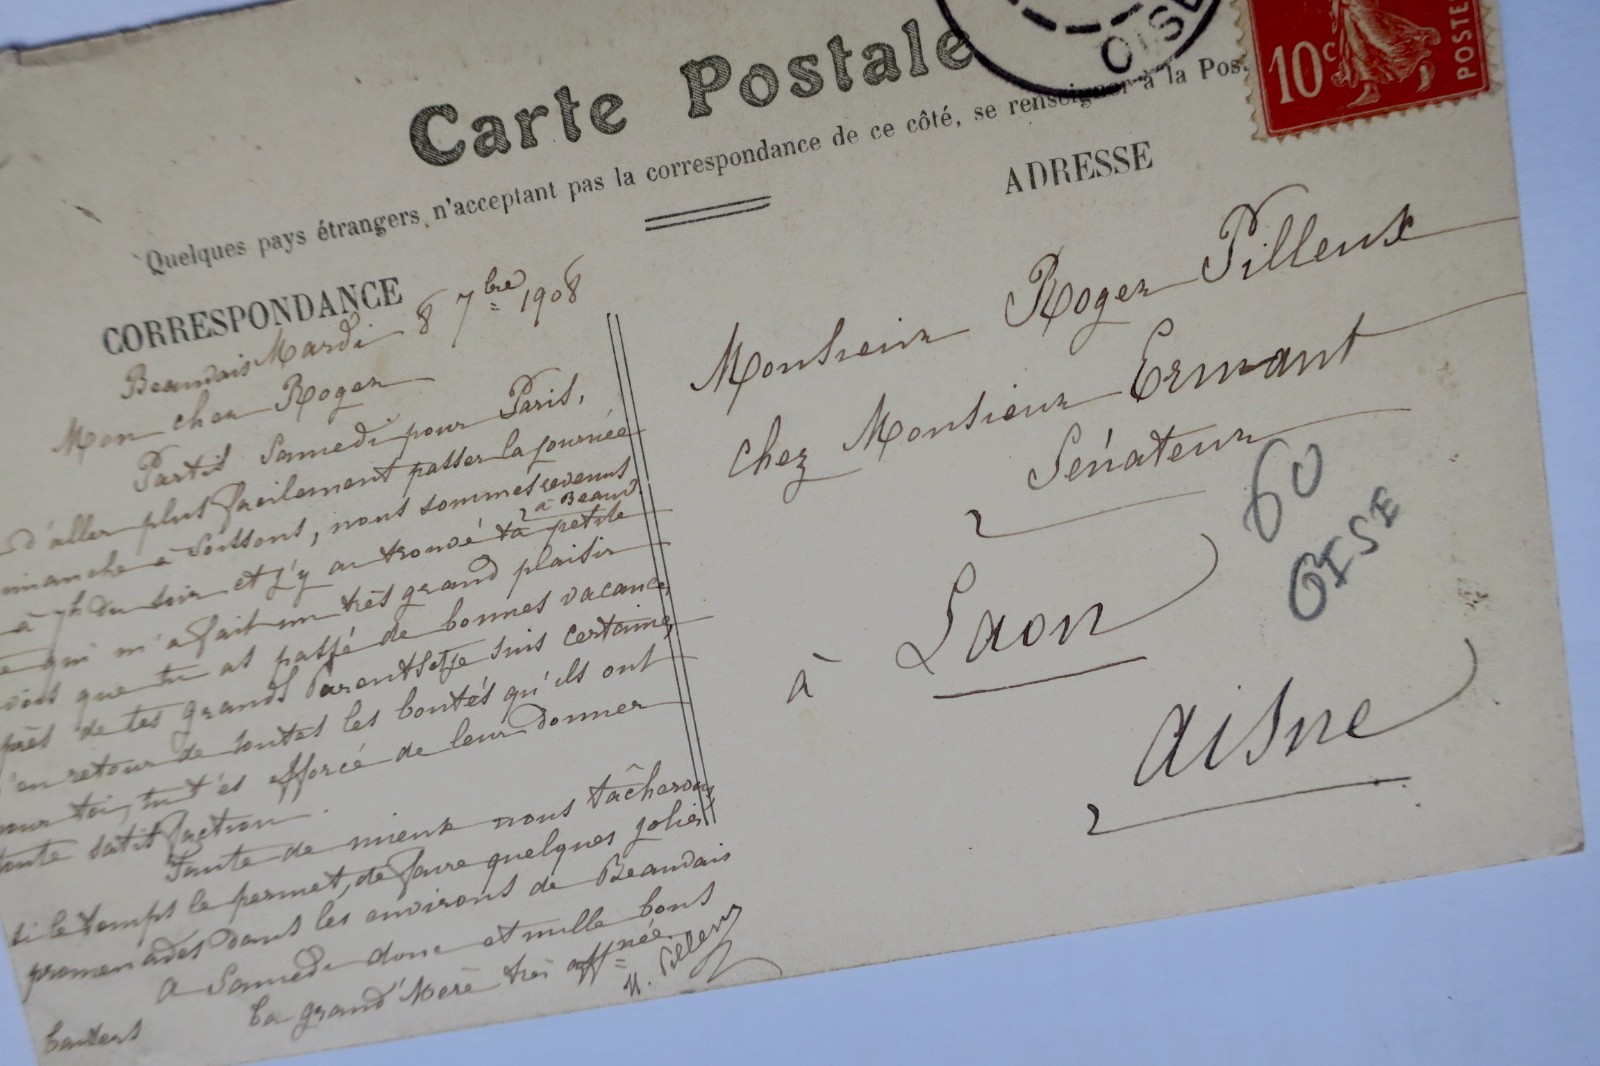 Carte Postale
Quelques pays étrangers n'acceptant pas la correspondance de ce côté, se renseigner à la Pos
CORRESPONDANCE
ADRESSE
OISE
10c
POSTE
Beauvais Mardi 8 7bre 1908
Mon cher Roger
Partis Samedi pour Paris,
d'aller plus facilement passer la journée
manche à Soissons, nous sommes revenus
à Beauv.
à 7h du soir et j'y ai trouvé ta petite
qui m'a fait un très grand plaisir
vois que tu as passé de bonnes vacances
près de tes grands Parents et je suis certaine,
qu'en retour de toutes les bontés qu'ils ont
pour toi, tu t'es efforcé de leur donner
toute satisfaction.
Tante de mieux nous tâcherons
si le temps le permet, de faire quelques jolies
promenades dans les environs de Beauvais
A Samedi donc et mille bons
baisers
Ta grand'Mère très affnée
Pilleux
Monsieur Roger Pilleux
chez Monsieur Ermant
Sénateur
à Laon
Aisne
60
OISE